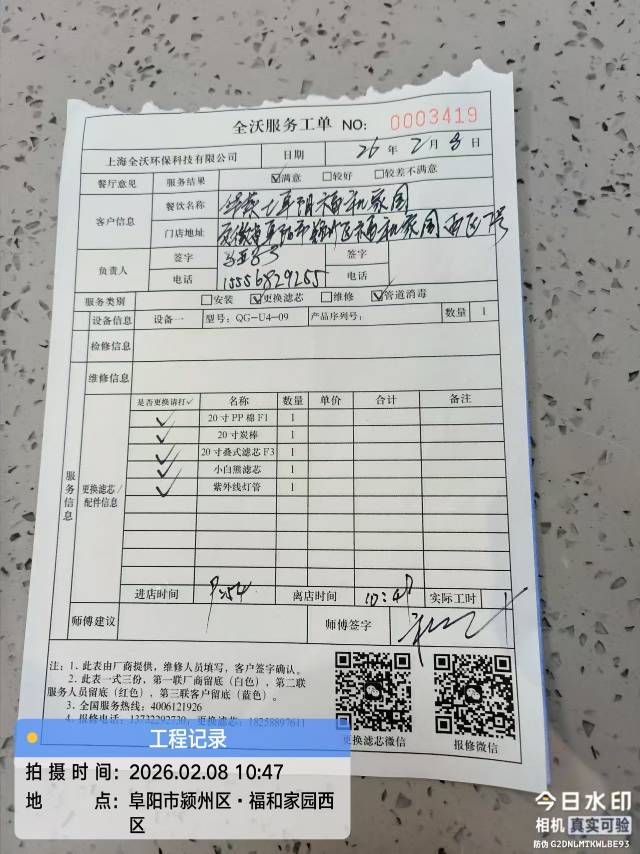 全沃服务工单 NO: 0003419
上海全沃环保科技有限公司 日期 26 年 2 月 8 日
餐厅意见 服务结果 ☑满意 □较好 □较差不满意
客户信息 餐饮名称 华莱士阜阳福和家园
门店地址 安徽省阜阳市颍州区福和家园西区7号
负责人 签字 签字
电话 15556829255 电话
服务类别 □安装 ☑更换滤芯 □维修 ☑管道消毒
设备信息 设备一 型号: QG-U4-09 产品序列号: 数量 1
检修信息
维修信息
服务信息 更换滤芯/配件信息
是否更换请打✓ 名称 数量 单价 合计 备注
✓ 20寸PP棉F1 1
✓ 20寸炭棒 1
✓ 20寸叠式滤芯F3 1
✓ 小白熊滤芯 1
✓ 紫外线灯管 1
进店时间 9:54 离店时间 10:47 实际工时
师傅建议 师傅签字
注: 1. 此表由厂商提供, 维修人员填写, 客户签字确认。
2. 此表一式三份, 第一联厂商留底(白色), 第二联
服务人员留底(红色), 第三联客户留底(蓝色)。
3. 全国服务热线: 4006121926
4. 报修电话: 13722292730, 更换滤芯: 18258897611
更换滤芯微信 报修微信
工程记录
拍摄时间: 2026.02.08 10:47
地 点: 阜阳市颍州区·福和家园西
区
今日水印
相机 真实可验
防伪 G2DNLMTKWLBE93